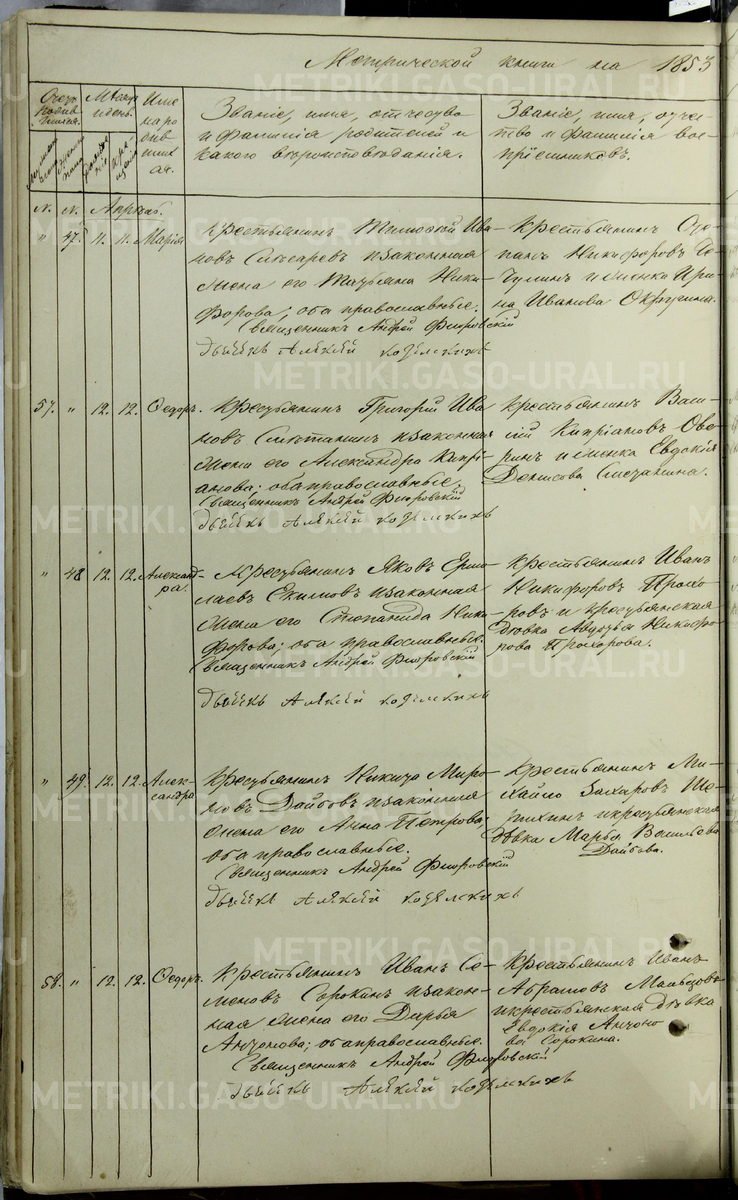 Метрической книги на 1853
Счетъ родив- шихся. Мѣсяцъ и день. Имена родив- шихся.
Званіе, имя, отчество
и фамилія родителей и
какого вѣроисповѣданія.
Званіе, имя, отче-
ство и фамилія вос-
пріемниковъ.
N. N. Апрѣль.
" 47. 11. 11. Марія
Крестьянинъ Тимофей Ива-
новъ Слесаревъ и законная
жена его Татьяна Ники-
форова; оба православные.
Священникъ Андрей Флоровскій
дьячекъ Алексій
Крестьянинъ Сте-
панъ Никифоровъ Че-
чулинъ и женка Ири-
на Иванова Округина.
57. " 12. 12. Ѳедоръ.
Крестьянинъ Григорій Ива
новъ Сметанинъ и законная
жена его Александра Кипрі-
анова; оба православные.
Священникъ Андрей Флоровскій
дьячекъ Алексій
Крестьянинъ Васи-
лій Кипріановъ Ове-
ринъ и женка Евдокія
Денисова Сметанина.
" 48 12. 12. Александ-
ра.
Крестьянинъ Яковъ Ермо
лаевъ Екимовъ и законная
жена его Степанида Ники-
форова; оба православные.
Священникъ Андрей Флоровскій
дьячекъ Алексій
Крестьянинъ Иванъ
Никифоровъ Прохо-
ровъ и крестьянская
дѣвка Авдотья Никифо-
рова Прохорова.
" 49. 12. 12. Алек-
сандра
Крестьянинъ Никита Миро-
новъ Дайбовъ и законная
жена его Анна Петрова;
оба православные.
Священникъ Андрей Флоровскій
дьячекъ Алексій
Крестьянинъ Ми-
хайло Захаровъ
и крестьянская
дѣвка Марья Васильева
Дайбова.
58. " 12. 12. Ѳедоръ.
Крестьянинъ Иванъ Се-
меновъ Сорокинъ и закон-
ная жена его Дарья
Антонова; оба православные.
Священникъ Андрей Флоровскій
дьячекъ Алексій
Крестьянинъ Иванъ
Абрамовъ Мальцовъ
и крестьянская дѣвка
Евдокія Антоно
ва Сорокина.
METRIKI.GASO-URAL.RU